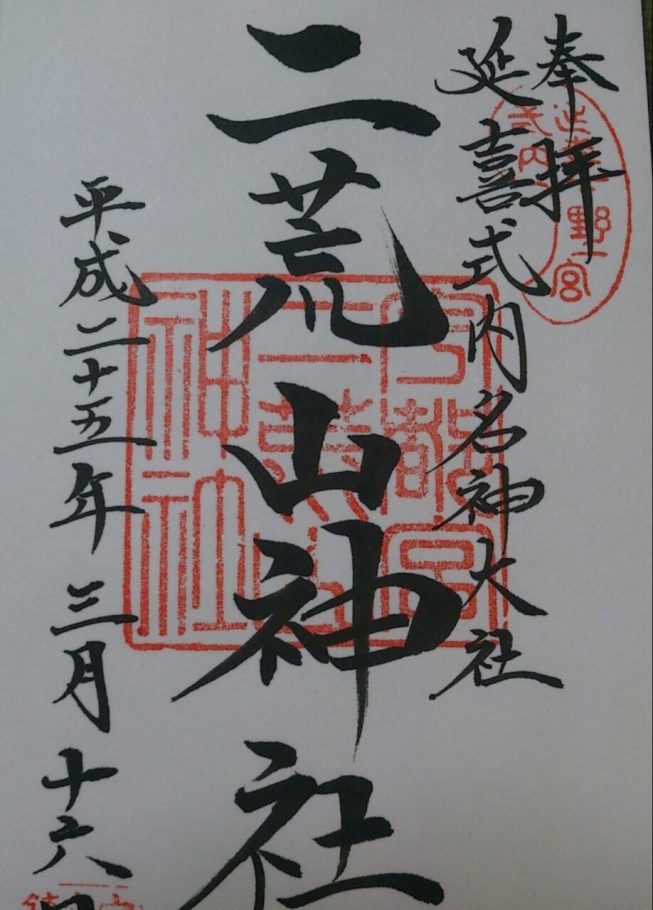 奉拝
延喜式内名神大社
二荒山神社
平成二十五年三月十六日
宇都宮
二荒山
神社